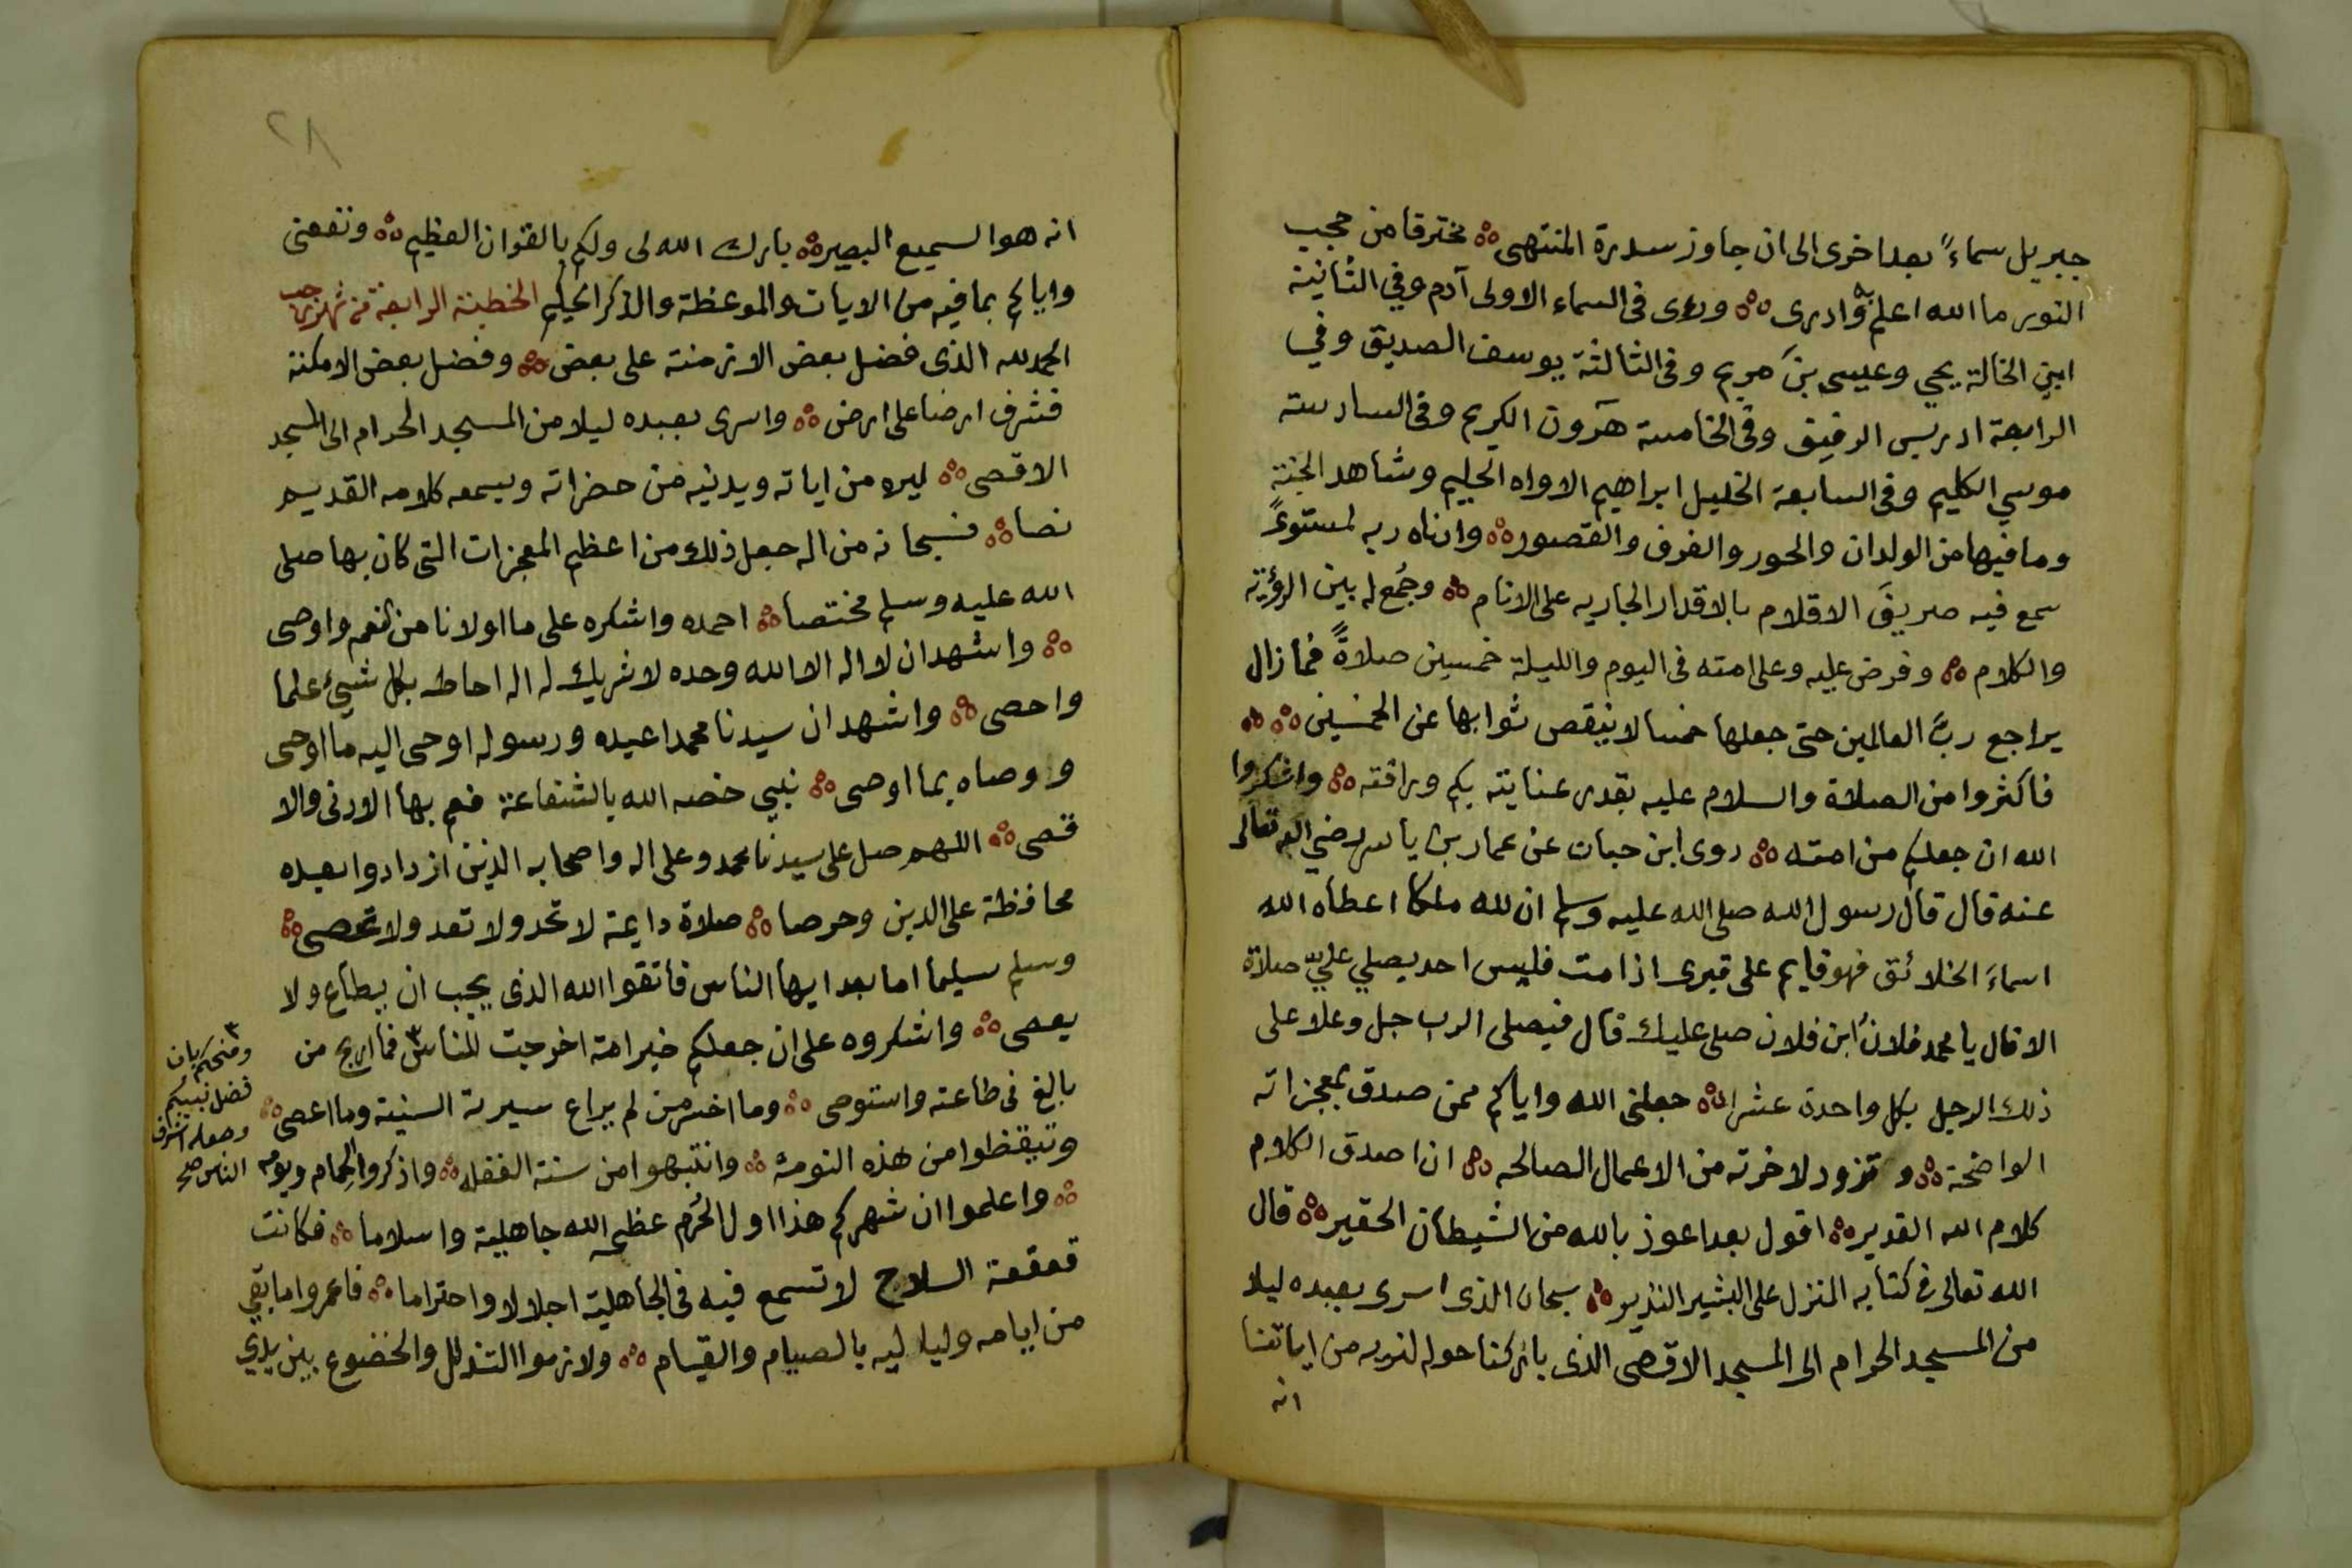 جبريل سماءً بعد اخرى الى ان جاوز سدرة المنتهى مخترقا من حجب
النور ما الله اعلم به وادرى وراى فى السماء الاولى آدم وفي الثانية
ابني الخالة يحي وعيسى بن مريم وفى الثالثة يوسف الصديق وفي
الرابعة ادريس الرفيق وفى الخامسة هرون الكريم وفى السادسة
موسي الكليم وفى السابعة الخليل ابراهيم الاواه الحليم وشاهد الجنة
وما فيها من الولدان والحور والغرف والقصور وادناه ربه لمستوىً
سمع فيه صريف الاقلام بالاقدار الجاريه على الانام وجُمع له بين الرؤية
والكلام وفرض عليه وعلى امته فى اليوم والليلة خمسين صلاةً فما زال
يراجع ربَّ العالمين حتى جعلها خمسا لا ينقص ثوابها عن الخمسين
فاكثروا من الصلاة والسلام عليه بقدر عنايته بكم ورافته واشكروا
الله ان جعلكم من امته روى ابن حبان عن عمار بن ياسر رضي الله تعالى
عنه قال قال رسول الله صلى الله عليه وسلم ان لله ملكا اعطاه الله
اسماءَ الخلائق فهو قايم على قبرى اذا مت فليس احد يصلي عليّ صلاة
الا قال يا محمد فلانُ ابن فلان صلى عليك قال فيصلى الرب جل وعلا على
ذلك الرجل بكل واحدة عشرا جعلنى الله واياكم ممن صدق بمعجزاته
الواضحة وتزود لاخرته من الاعمال الصالحه ان اصدق الكلام
كلام الله القدير اقول بعد اعوذ بالله من الشيطان الحقير قال
الله تعالى فى كتابه المنزل على البشير النذير سبحان الذى اسرى بعبده ليلا
من المسجد الحرام الى المسجد الاقصى الذى باركنا حوله لنريه من اياتنا
انه
٢٨
انه هو السميع البصير بارك الله لى ولكم بالقران العظيم ونفعنى
واياكم بما فيه من الايات والموعظة والذكر الحكيم الخطبة الرابعة من شهر رجب
الحمد لله الذى فضل بعض الازمنة على بعض وفضل بعض الامكنة
فشرف ارضا على ارض واسرى بعبده ليلا من المسجد الحرام الى المسجد
الاقصى ليره من اياته ويدنيه من حضراته ويسمعه كلامه القديم
نصا فسبحانه من اله جعل ذلك من اعظم المعجزات التى كان بها صلى
الله عليه وسلم مختصا احمده واشكره على ما اولانا من نعم واوصى
واشهد ان لا اله الا الله وحده لا شريك له اله احاط بكل شيئ علما
واحصى واشهد ان سيدنا محمدا عبده ورسوله اوحى اليه ما اوحى
ووصاه بما اوصى نبي خصه الله بالشفاعة فعم بها الادنى والا
قصى اللهم صل على سيدنا محمد وعلى اله واصحابه الذين ازدادوا بعده
محافظة على الدين وحرصا صلاة دايمة لا تحد ولا تعد ولا تحصى
وسلم سليما اما بعد ايها الناس فاتقوا الله الذى يجب ان يطاع ولا
يعصى واشكروه على ان جعلكم خير امة اخرجت للناس ٣ فما اربح من
بالغ فى طاعته واستوصى وما اخسر من لم يراع سيرته السنية وما اعصى
وتيقظوا من هذه النومة وانتبهوا من سنة الغفله واذكروا الحمام ويومه
واعلموا ان شهركم هذا اول الحُرم عظمه الله جاهلية واسلاما فكانت
قعقعة السلاح لا تسمع فيه فى الجاهلية اجلالا واحتراما فاعمروا ما بقي
من ايامه ولياليه بالصيام والقيام ولازموا التذلل والخضوع بين يدي
٣
ومنحكم بان
فضل نبيكم
وجعله اشرف
الناس صح